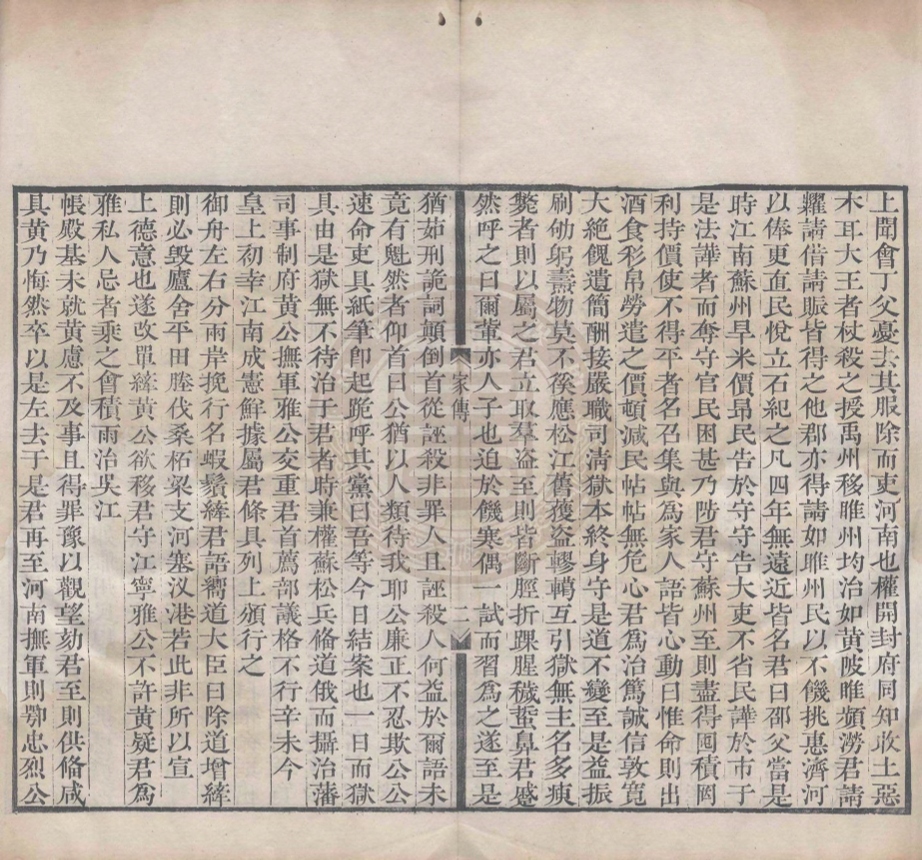 上聞會丁父憂去其服除而吏河南也權開封府同知收土惡
木耳大王者杖殺之授禹州移睢州均治如黃陂睢頻澇君請
糶請借請賑皆得之他郡亦得請如睢州民以不饑挑惠濟河
以俸更直民悅立石紀之凡四年無遠近皆名君曰邵父當是
時江南蘇州旱米價昂民告於守守告大吏不省民譁於市于
是法譁者而奪守官民困甚乃陟君守蘇州至則盡得囤積罔
利持價使不得平者名召集與為家人語皆心動曰惟命則出
酒食彩帛勞遣之價頓減民帖帖無危心君為治篤誠信敦寬
大絶餽遺簡酬接嚴職司清獄本終身守是道不變至是益振
刷劬躬燾物莫不徯應松江舊獲盜轇轕互引獄無主名多瘐
斃者則以屬之君立取羣盜至則皆斷脛折踝腥穢蜇鼻君慼
然呼之曰爾輩亦人子也迫於饑寒偶一試而習為之遂至是
家傳
二
猶茹刑詭詞顛倒首從誣殺非罪人且誣殺人何益於爾語未
竟有魁然者仰首曰公猶以人類待我耶公廉正不忍欺公公
速命吏具紙筆卽起跪呼其黨曰吾等今日結案也一日而獄
具由是獄無不待治于君者時兼權蘇松兵備道俄而攝治藩
司事制府黃公撫軍雅公交重君首薦部議格不行辛未今
皇上初幸江南成憲鮮據屬君條具列上頒行之
御舟左右分兩岸挽行名蝦鬚縴君語嚮道大臣曰除道增縴
則必毀廬舍平田塍伐桑柘梁支河塞汊港若此非所以宣
上德意也遂改單縴黃公欲移君守江寧雅公不許黃疑君為
雅私人忌者乘之會積雨治吳江
帳殿基未就黃慮不及事且得罪豫以觀望劾君至則供備咸
具黃乃悔然卒以是左去于是君再至河南撫軍則鄂忠烈公